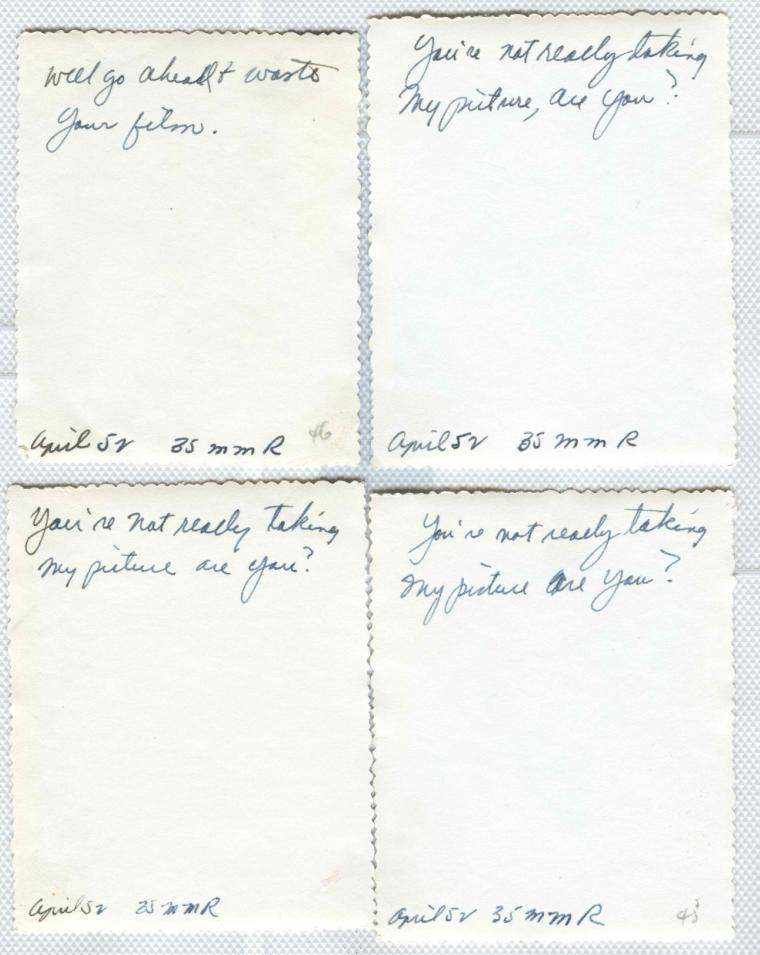 Well go ahead & waste
your film.
April 52 35 mm R 46
You're not really taking
My picture, are you?
April 52 35 mm R
You're not really taking
my picture are you?
April 52 35 mm R
You're not really taking
my picture are you?
April 52 35 mm R 45